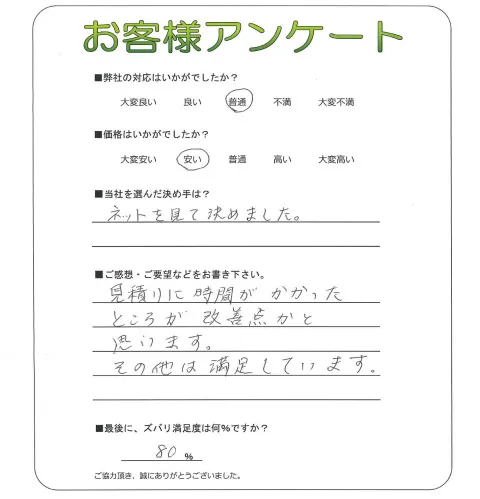 お客様アンケート
■弊社の対応はいかがでしたか？
大変良い 良い 普通 不満 大変不満
■価格はいかがでしたか？
大変安い 安い 普通 高い 大変高い
■当社を選んだ決め手は？
ネットを見て決めました。
■ご感想・ご要望などをお書き下さい。
見積りに時間がかかった
ところが改善点かと
思います。
その他は満足しています。
■最後に、ズバリ満足度は何%ですか？
80 %
ご協力頂き、誠にありがとうございました。